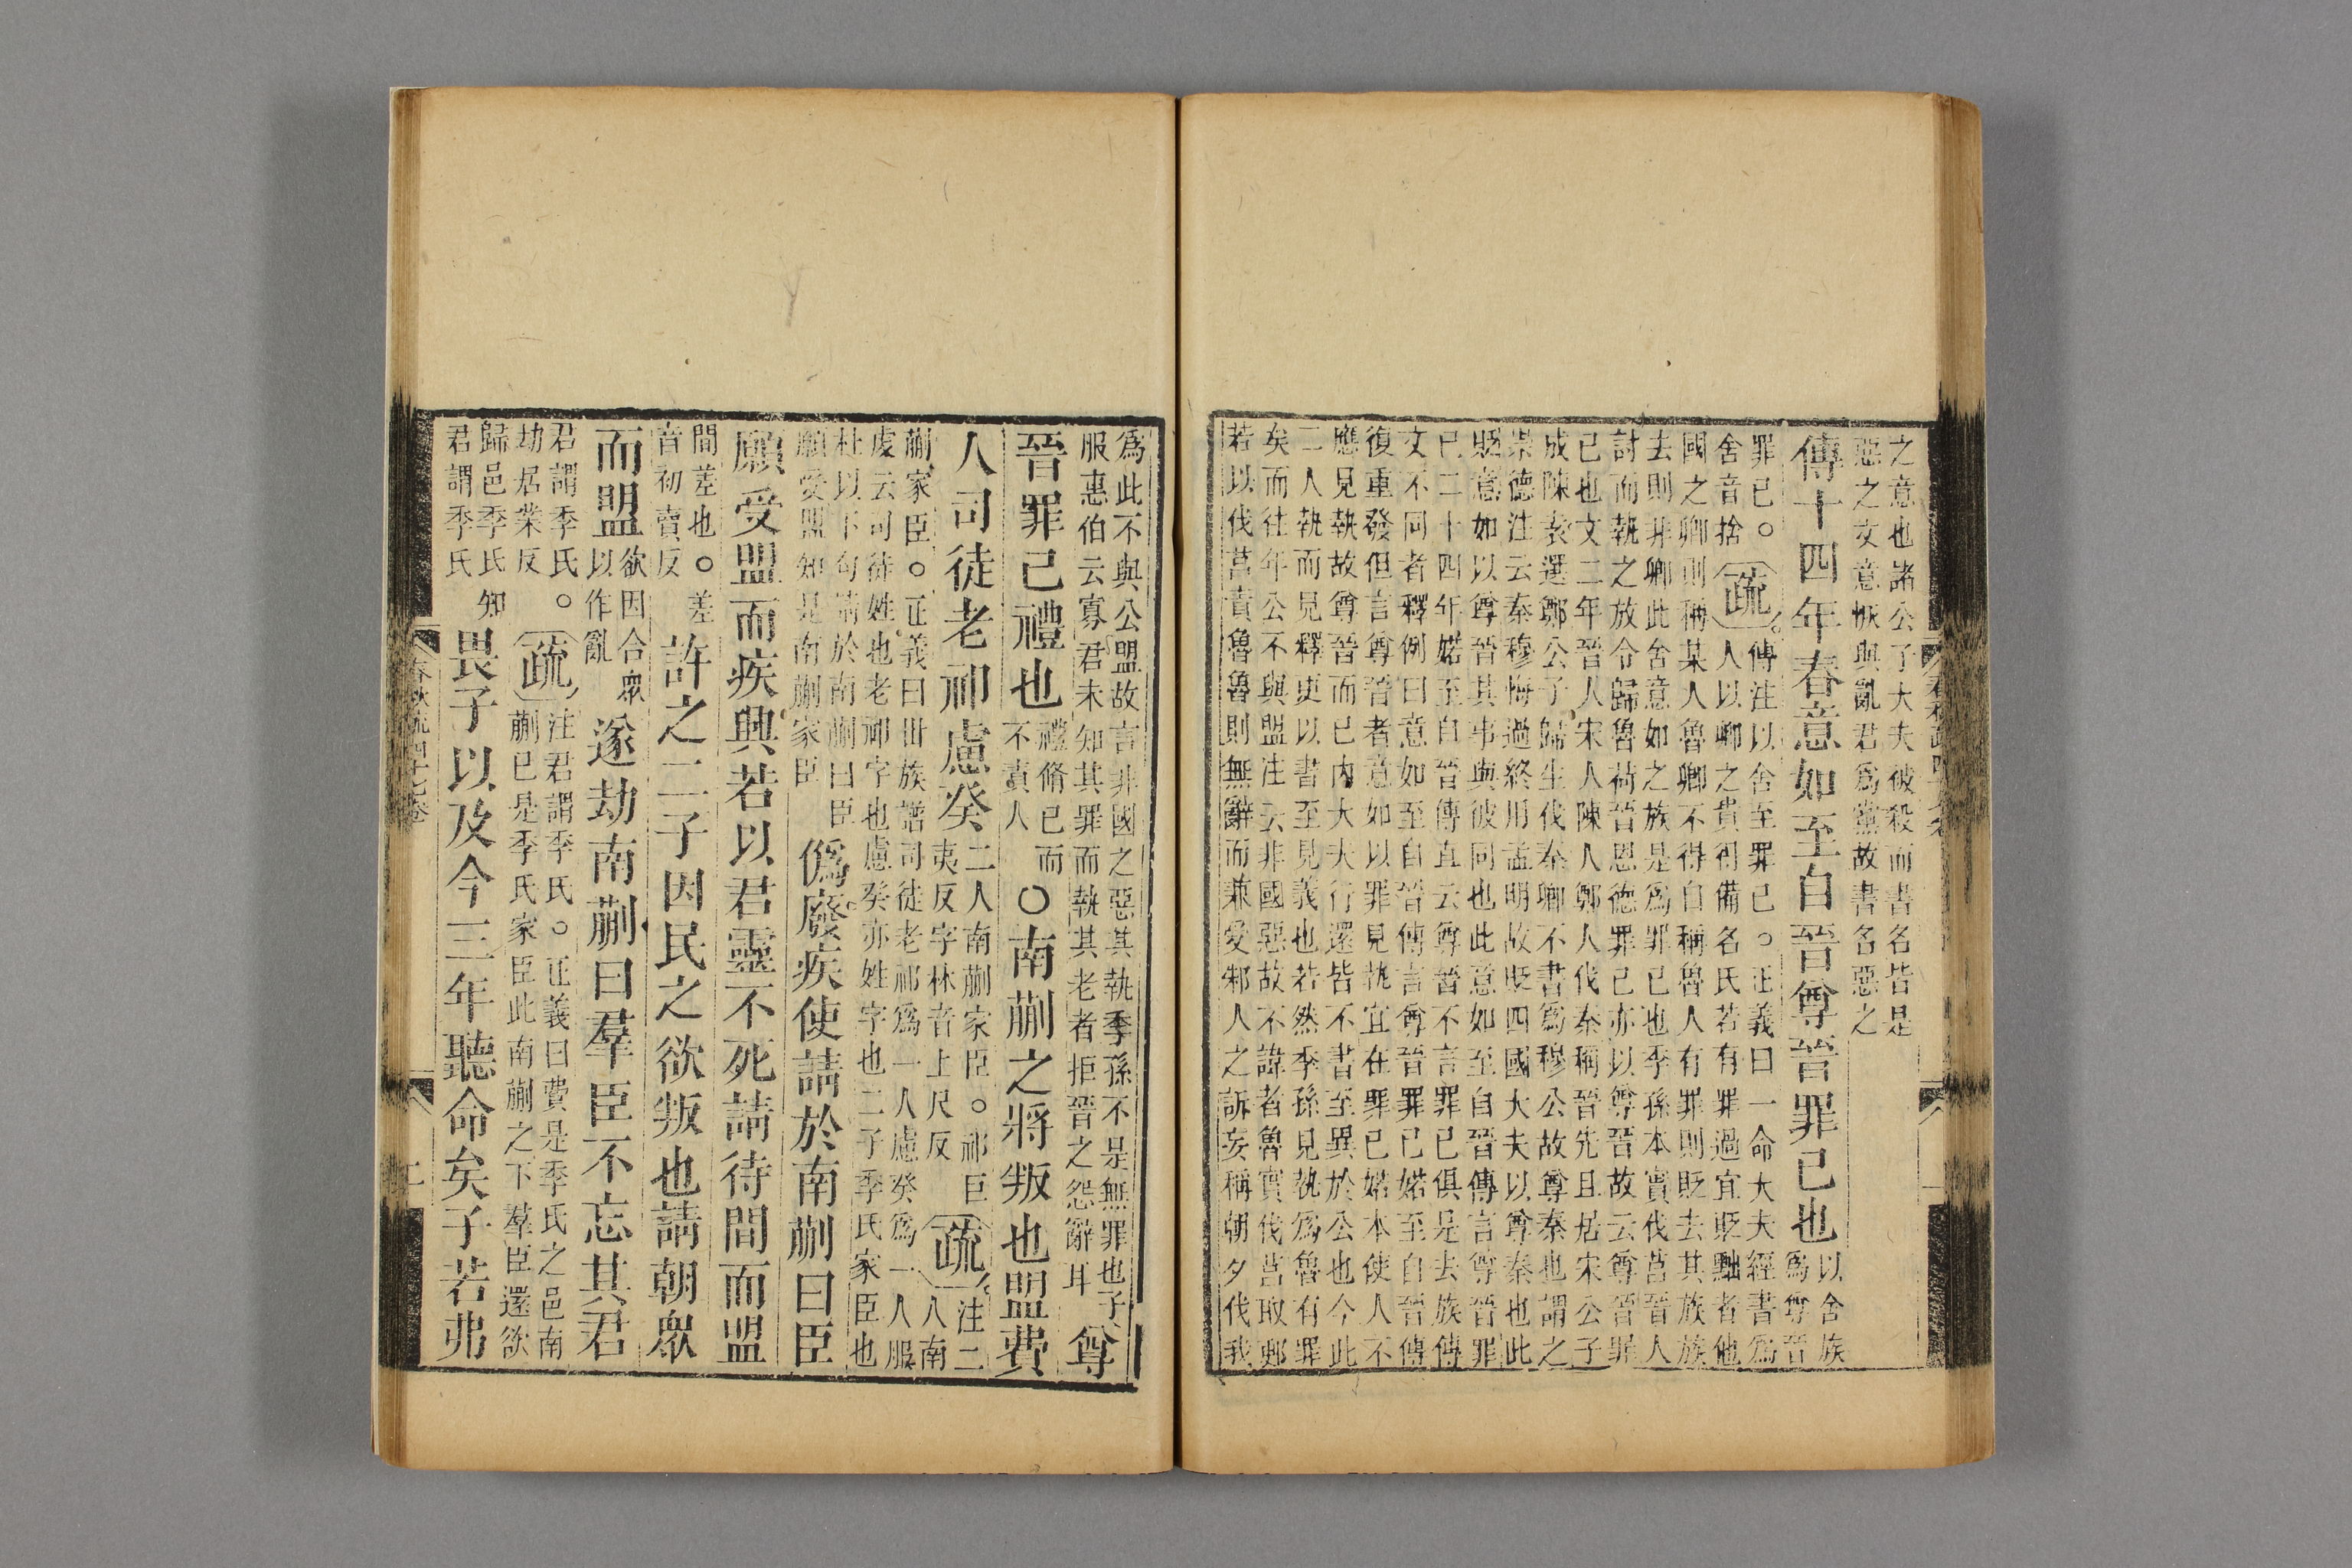 之意也諸公子大夫被殺而書名皆是
惡之文意恢與亂君爲黨故書名惡之
傳十四年春意如至自晉尊晉罪已也
以舍族
爲尊晉
罪已○
舍音捨
疏
傳注以舍至罪已○正義曰一命大夫經書爲
人以卿之貴得備名氏若有罪過宜貶黜者他
國之卿則稱某人魯卿不得自稱魯人有罪則貶去其族族
去則非卿此舍意如之族是爲罪已也季孫本實伐莒晉人
討而執之放令歸魯荷晉恩德罪已亦以尊晉故云尊晉罪
已也文二年晉人宋人陳人鄭人伐秦稱晉先且居宋公子
成陳轅選鄭公子歸生伐秦卿不書爲穆公故尊秦也謂之
崇德注云秦穆悔過終用孟明故貶四國大夫以尊秦也此
貶意如以尊晉其事與彼同也此意如至自晉傳言尊晉罪
已二十四年婼至自晉傳直云尊晉不言罪已俱是去族傳
文不同者釋例曰意如至自晉傳言尊晉罪已婼至自晉傳
復重發但言尊晉者意如以罪見執宜在罪已婼本使人不
應見執故尊晉而已內大夫行還皆不書至異於公也今此
二人執而見釋更以書至見義也若然季孫見執爲魯有罪
矣而往年公不與盟注云非國惡故不諱者魯實伐莒取鄆
若以伐莒責魯魯則無辭而兼愛邾人之訴妄稱朝夕伐我
爲此不與公盟故言非國之惡其執季孫不是無罪也子
服惠伯云寡君未知其罪而執其老者拒晉之怨辭耳
尊
晉罪己禮也
禮脩已而
不責人
○南蒯之將叛也盟費
人司徒老祁慮癸
二人南蒯家臣○祁巨
夷反字林音上尺反
疏
注二
八南
蒯家臣○正義曰世族譜司徒老祁爲一人慮癸爲一人服
虔云司徒姓也老祁字也慮癸亦姓字也二子季氏家臣也
杜以下句請於南蒯曰臣
願受盟知是南蒯家臣
僞廢疾使請於南蒯曰臣
願受盟而疾興若以君靈不死請待間而盟
間差也○差
音初賣反
許之二子因民之欲叛也請朝衆
而盟
欲因合衆
以作亂
遂劫南蒯曰羣臣不忘其君
君謂季氏○
劫居業反
疏
注君謂季氏○正義曰費是季氏之邑南
蒯已是季氏家臣此南蒯之下羣臣還欲
歸邑季氏知
君謂季氏
畏子以及今三年聽命矣子若弗
春秋疏四十七卷
二